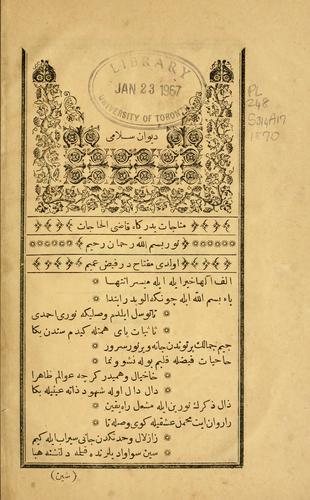 LIBRARY
JAN 23 1967
UNIVERSITY OF TORONTO
PL
248
S314A17
1870
ديوان سلامى
مناجات بدركاه قاضى الحاجات
نور بسم الله رحمان رحيم
اولدى مفتاح در فيض عميم
الف الله اخير ايله ايله ميسر انتها
باء بسم الله ايله چونكه الوبدر ابتدا
تاتوسل ايلدم وصليكه نورى احمدى
ثا ثيات پاى همتله كيدم سندن يكا
جيم جمالك پرتوندن جانه ويرنور سرور
حا حيات فيضله قلبم بوله نشو ونما
خا خيال وهميدر كرچه عوالم ظاهرا
دال دال اوله شهود ذاته عينيله بكا
ذال ذكرك نورين ايله مشعل راه يقين
را روان ايت محمل عشقيله كوى وصله تا
زا زلال وحدتكدن جانى سيراب ايله كيم
سين سواواد يلرنده قيلمه دلتشنه هبا
(سين)